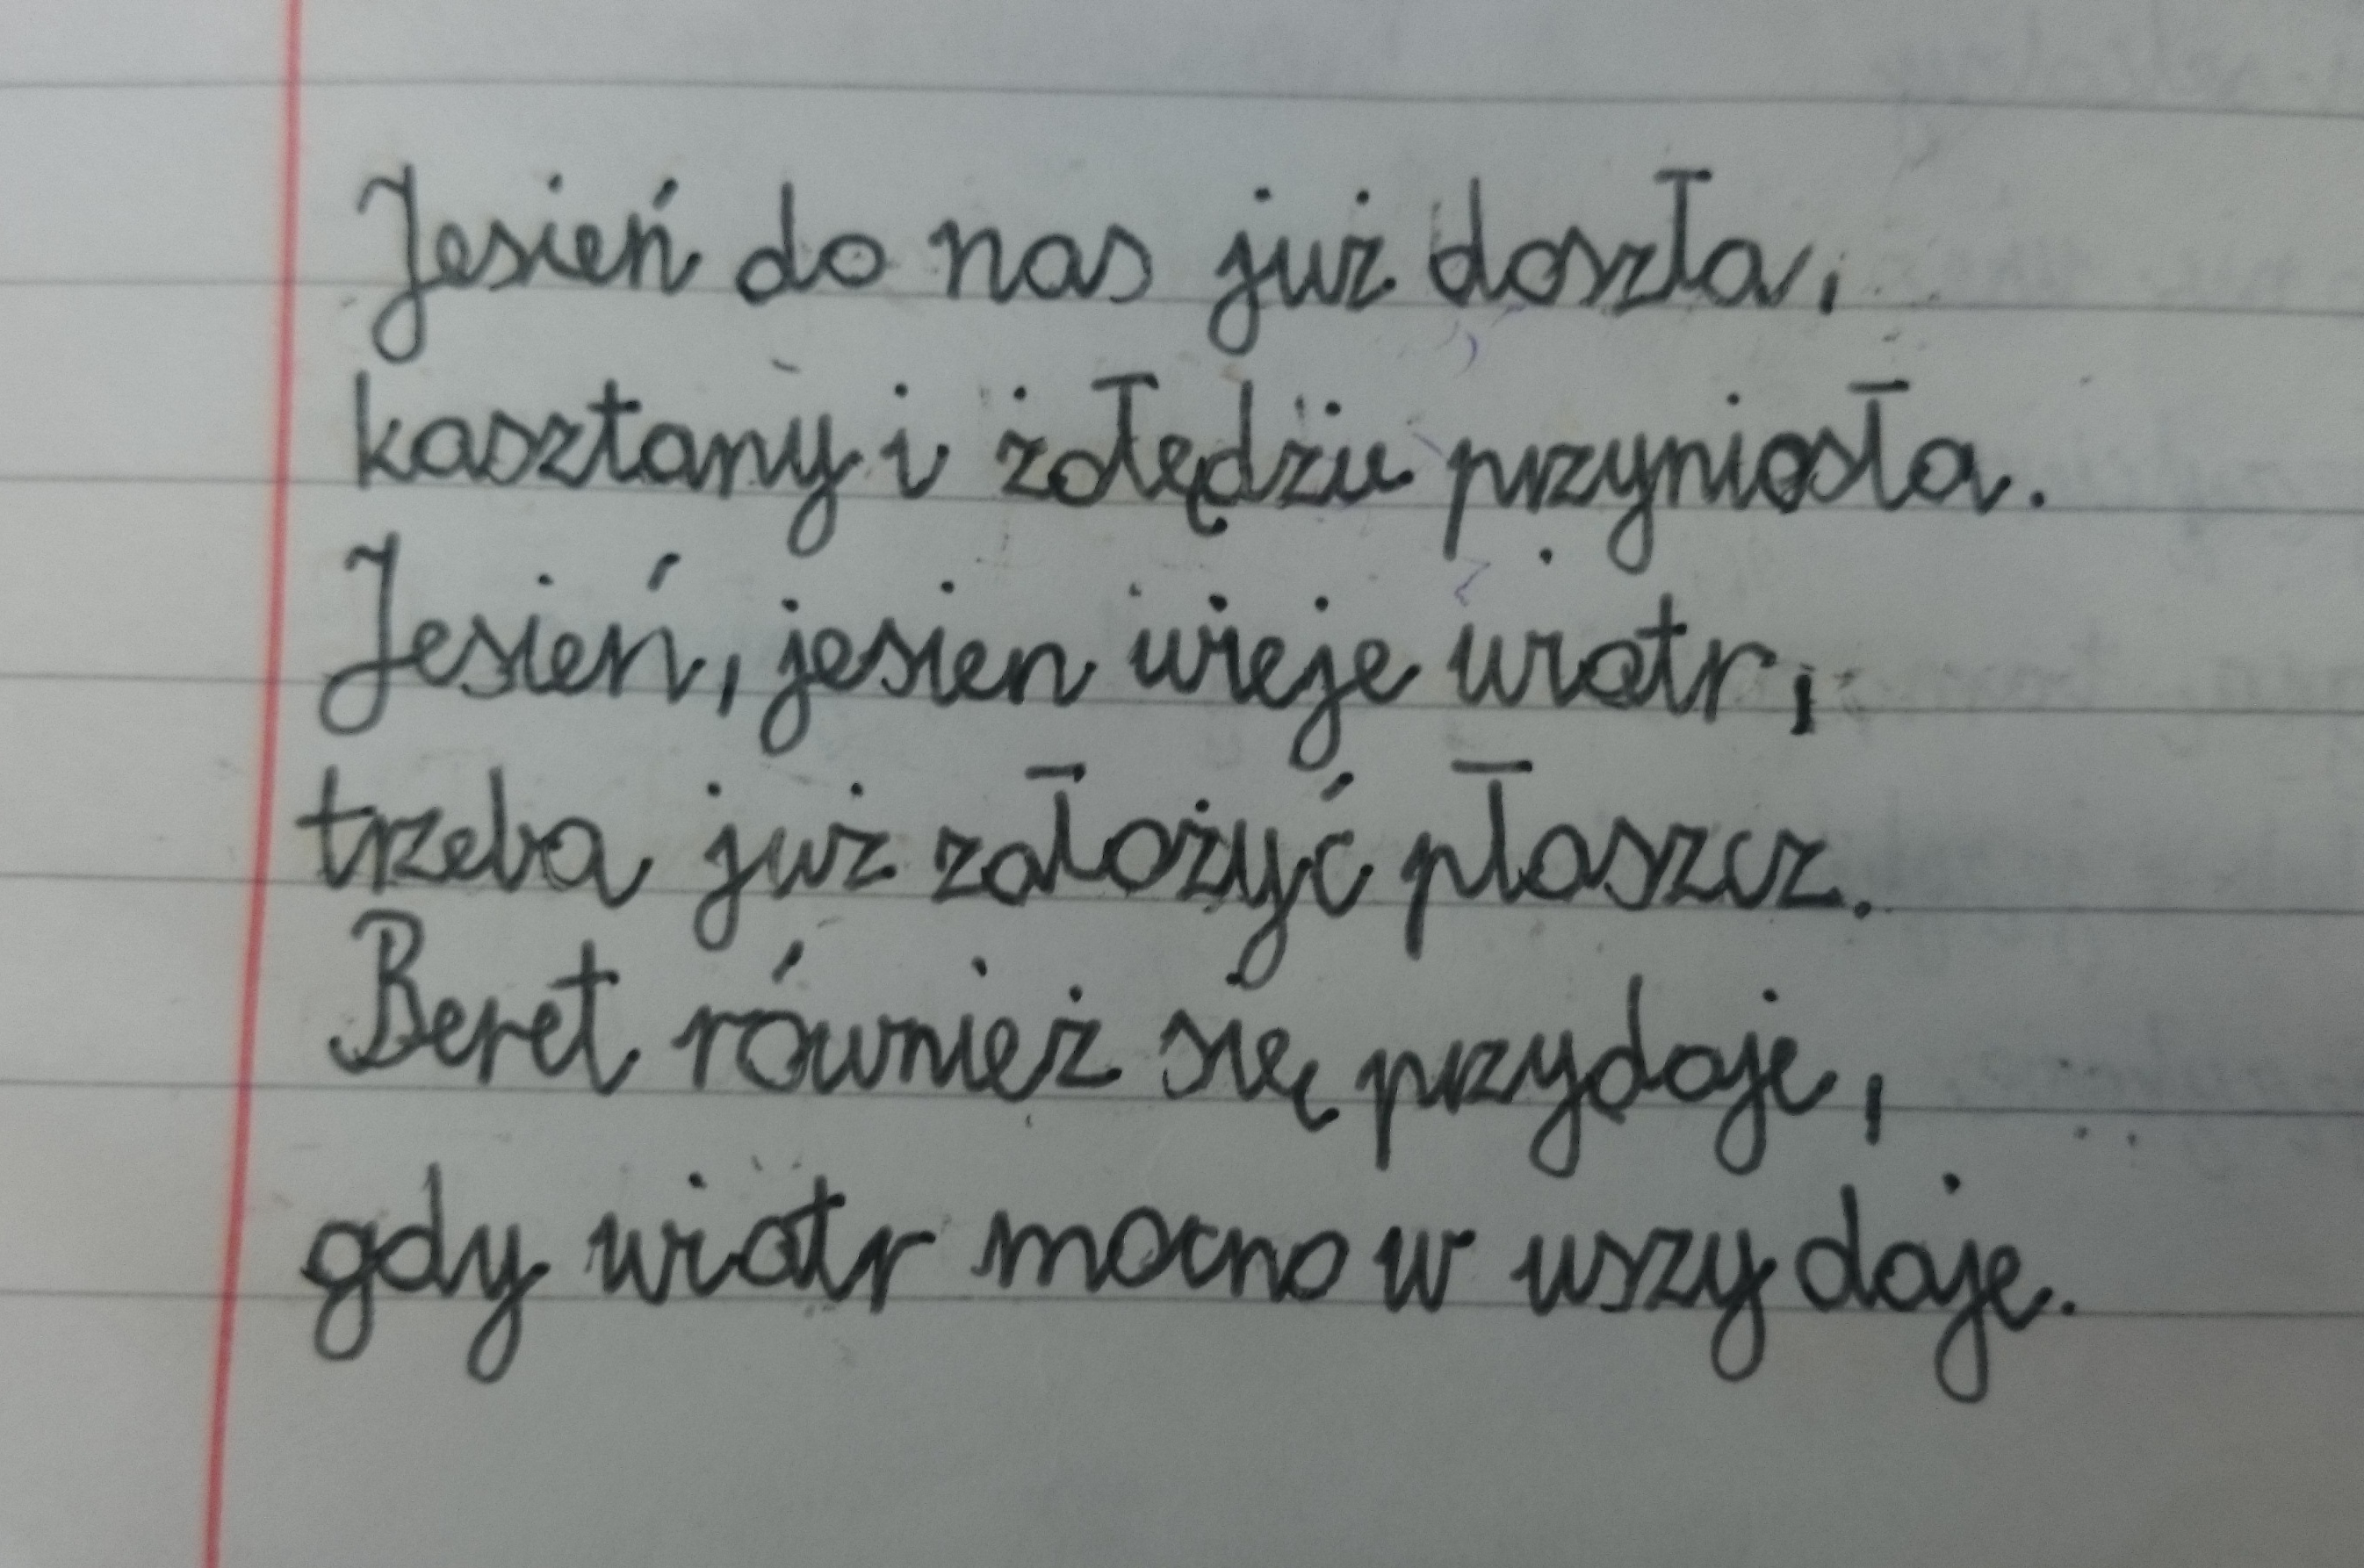 Jesień do nas już doszła,
kasztany i żołędzie przyniosła.
Jesień, jesien wieje wiatr,
trzeba już założyć płaszcz.
Beret również się przydaje,
gdy wiatr mocno w uszy daje.